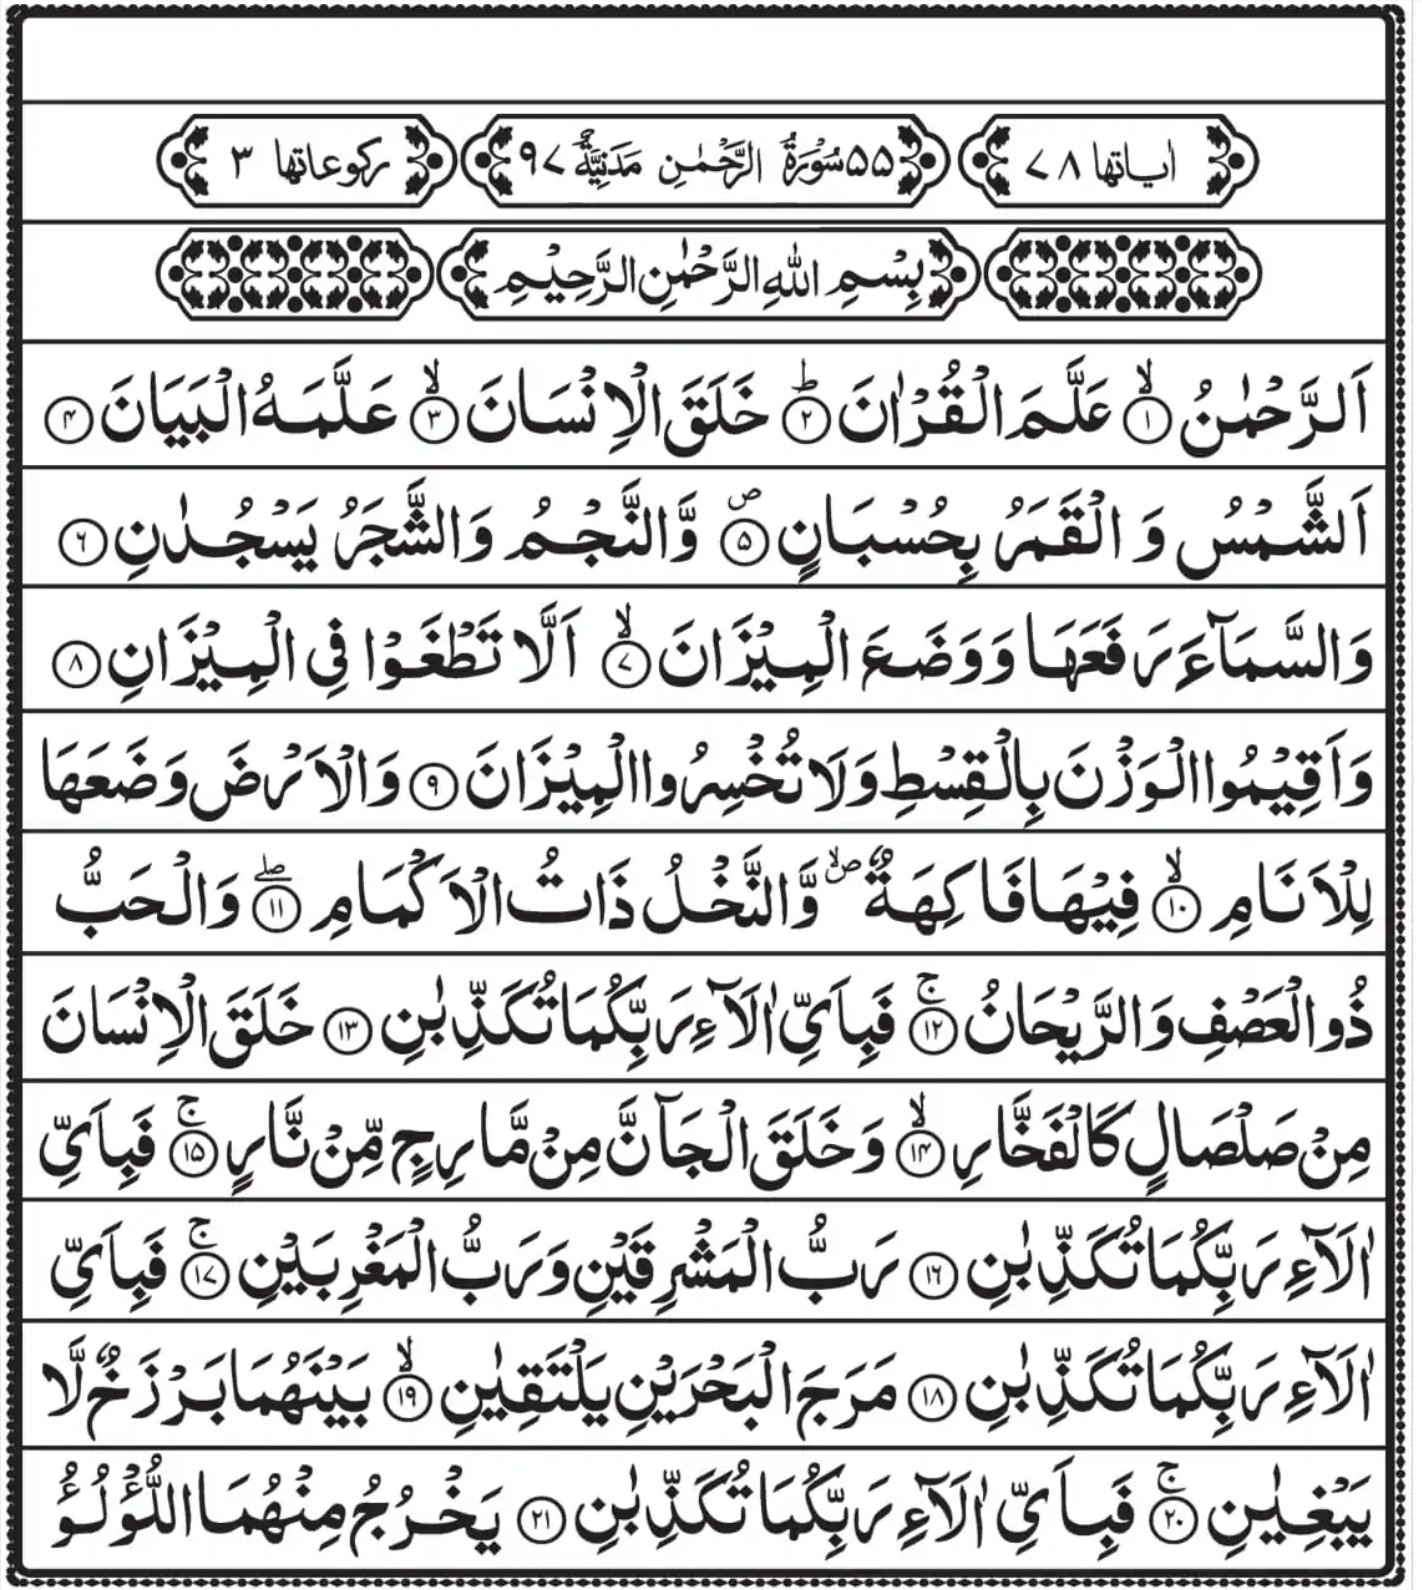 اٰیاتها ٧٨ ٥٥ سُوْرَةُ الرَّحْمٰنِ مَدَنِيَّةٌ ٩٧ ركوعاتها ٣
بِسْمِ اللّٰهِ الرَّحْمٰنِ الرَّحِيْمِ
اَلرَّحْمٰنُ ۙ﴿۱﴾ عَلَّمَ الْقُرْاٰنَ ؕ﴿۲﴾ خَلَقَ الْاِنْسَانَ ۙ﴿۳﴾ عَلَّمَهُ الْبَيَانَ ﴿۴﴾
اَلشَّمْسُ وَ الْقَمَرُ بِحُسْبَانٍ ۪﴿۵﴾ وَّالنَّجْمُ وَالشَّجَرُ يَسْجُدٰنِ ﴿۶﴾
وَالسَّمَآءَ رَفَعَهَا وَوَضَعَ الْمِيْزَانَ ۙ﴿۷﴾ اَلَّا تَطْغَوْا فِي الْمِيْزَانِ ﴿۸﴾
وَاَقِيْمُوا الْوَزْنَ بِالْقِسْطِ وَلَا تُخْسِرُوا الْمِيْزَانَ ﴿۹﴾ وَالْاَرْضَ وَضَعَهَا
لِلْاَنَامِ ۙ﴿۱۰﴾ فِيْهَا فَاكِهَةٌ ۪ۙ وَّالنَّخْلُ ذَاتُ الْاَكْمَامِ ۖ﴿۱۱﴾ وَالْحَبُّ
ذُو الْعَصْفِ وَالرَّيْحَانُ ۚ﴿۱۲﴾ فَبِاَيِّ اٰلَآءِ رَبِّكُمَا تُكَذِّبٰنِ ﴿۱۳﴾ خَلَقَ الْاِنْسَانَ
مِنْ صَلْصَالٍ كَالْفَخَّارِ ۙ﴿۱۴﴾ وَخَلَقَ الْجَآنَّ مِنْ مَّارِجٍ مِّنْ نَّارٍ ۚ﴿۱۵﴾ فَبِاَيِّ
اٰلَآءِ رَبِّكُمَا تُكَذِّبٰنِ ﴿۱۶﴾ رَبُّ الْمَشْرِقَيْنِ وَرَبُّ الْمَغْرِبَيْنِ ۚ﴿۱۷﴾ فَبِاَيِّ
اٰلَآءِ رَبِّكُمَا تُكَذِّبٰنِ ﴿۱۸﴾ مَرَجَ الْبَحْرَيْنِ يَلْتَقِيٰنِ ۙ﴿۱۹﴾ بَيْنَهُمَا بَرْزَخٌ لَّا
يَبْغِيٰنِ ۚ﴿۲۰﴾ فَبِاَيِّ اٰلَآءِ رَبِّكُمَا تُكَذِّبٰنِ ﴿۲۱﴾ يَخْرُجُ مِنْهُمَا اللُّؤْلُؤُ